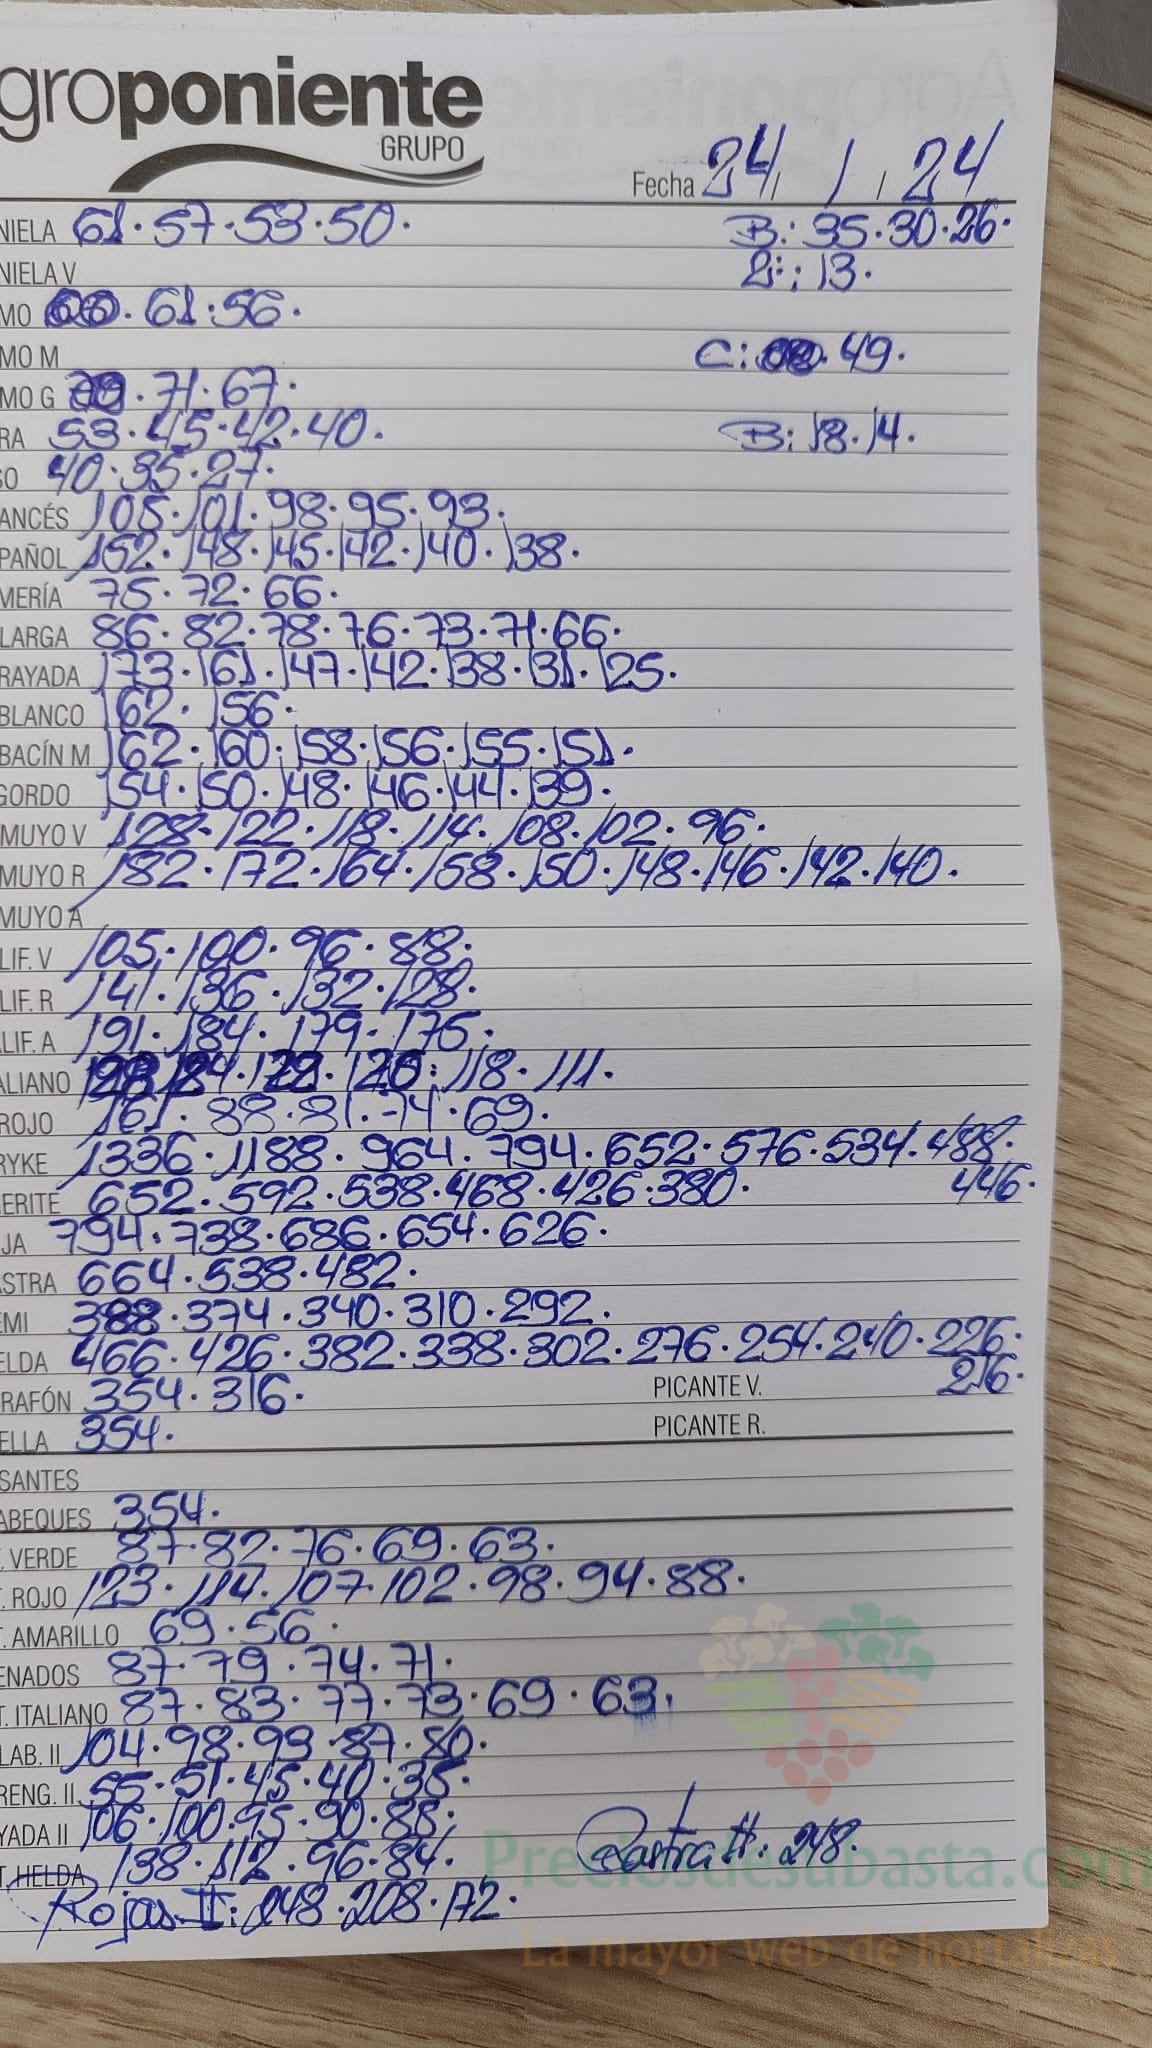 groponiente
GRUPO
Fecha 24 / 1 / 24
NIELA 61. 57. 53. 50. B: 35. 30. 26.
NIELA V 2ª: 13.
MO 61. 56.
MO M C: 49.
MO G 71. 67.
RA 53. 45. 42. 40. B: 18. 14.
SO 40. 35. 27.
ANCÉS 105. 101. 98. 95. 93.
PAÑOL 152. 148. 145. 142. 140. 138.
MERÍA 75. 72. 66.
LARGA 86. 82. 78. 76. 73. 71. 66.
RAYADA 173. 161. 147. 142. 138. 131. 125.
BLANCO 162. 156.
BACÍN M 162. 160. 158. 156. 155. 151.
GORDO 154. 150. 148. 146. 144. 139.
MUYO V 128. 122. 118. 114. 108. 102. 96.
MUYO R 182. 172. 164. 158. 150. 148. 146. 142. 140.
MUYO A
LIF. V 105. 100. 96. 88.
LIF. R 141. 136. 132. 128.
LIF. A 191. 184. 179. 175.
ALIANO 124. 122. 120. 118. 111.
ROJO 161. 88. 81. 74. 69.
RYKE 1336. 1188. 964. 794. 652. 576. 534. 488.
446.
ERITE 652. 592. 538. 468. 426. 380.
JA 794. 738. 686. 654. 626.
ASTRA 664. 538. 482.
EMI 388. 374. 340. 310. 292.
ELDA 466. 426. 382. 338. 302. 276. 254. 240. 226.
216.
RAFÓN 354. 316. PICANTE V.
ELLA 354. PICANTE R.
SANTES
ABEQUES 354.
T. VERDE 87. 82. 76. 69. 63.
T. ROJO 123. 114. 107. 102. 98. 94. 88.
T. AMARILLO 69. 56.
ENADOS 87. 79. 74. 71.
T. ITALIANO 87. 83. 77. 73. 69. 63.
LAB. II 104. 98. 93. 87. 80.
RENG. II 55. 51. 45. 40. 35.
YADA II 106. 100. 95. 90. 88.
T. HELDA 138. 112. 96. 84. Castra II: 248.
Rojas II: 248. 208. 172.
Preciosdesubasta.com
La mayor web de hortalizas